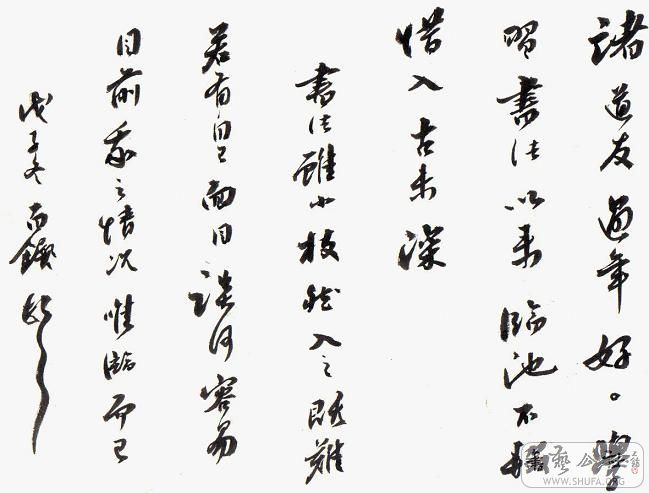 諸道友過年好。學
習書法以來臨池不輟
惜入古未深
書法雖小技然入之既難
若有自己面目談何容易
目前我之情況惟臨而已
戊子冬
書藝公社
www.SHUFA.ORG